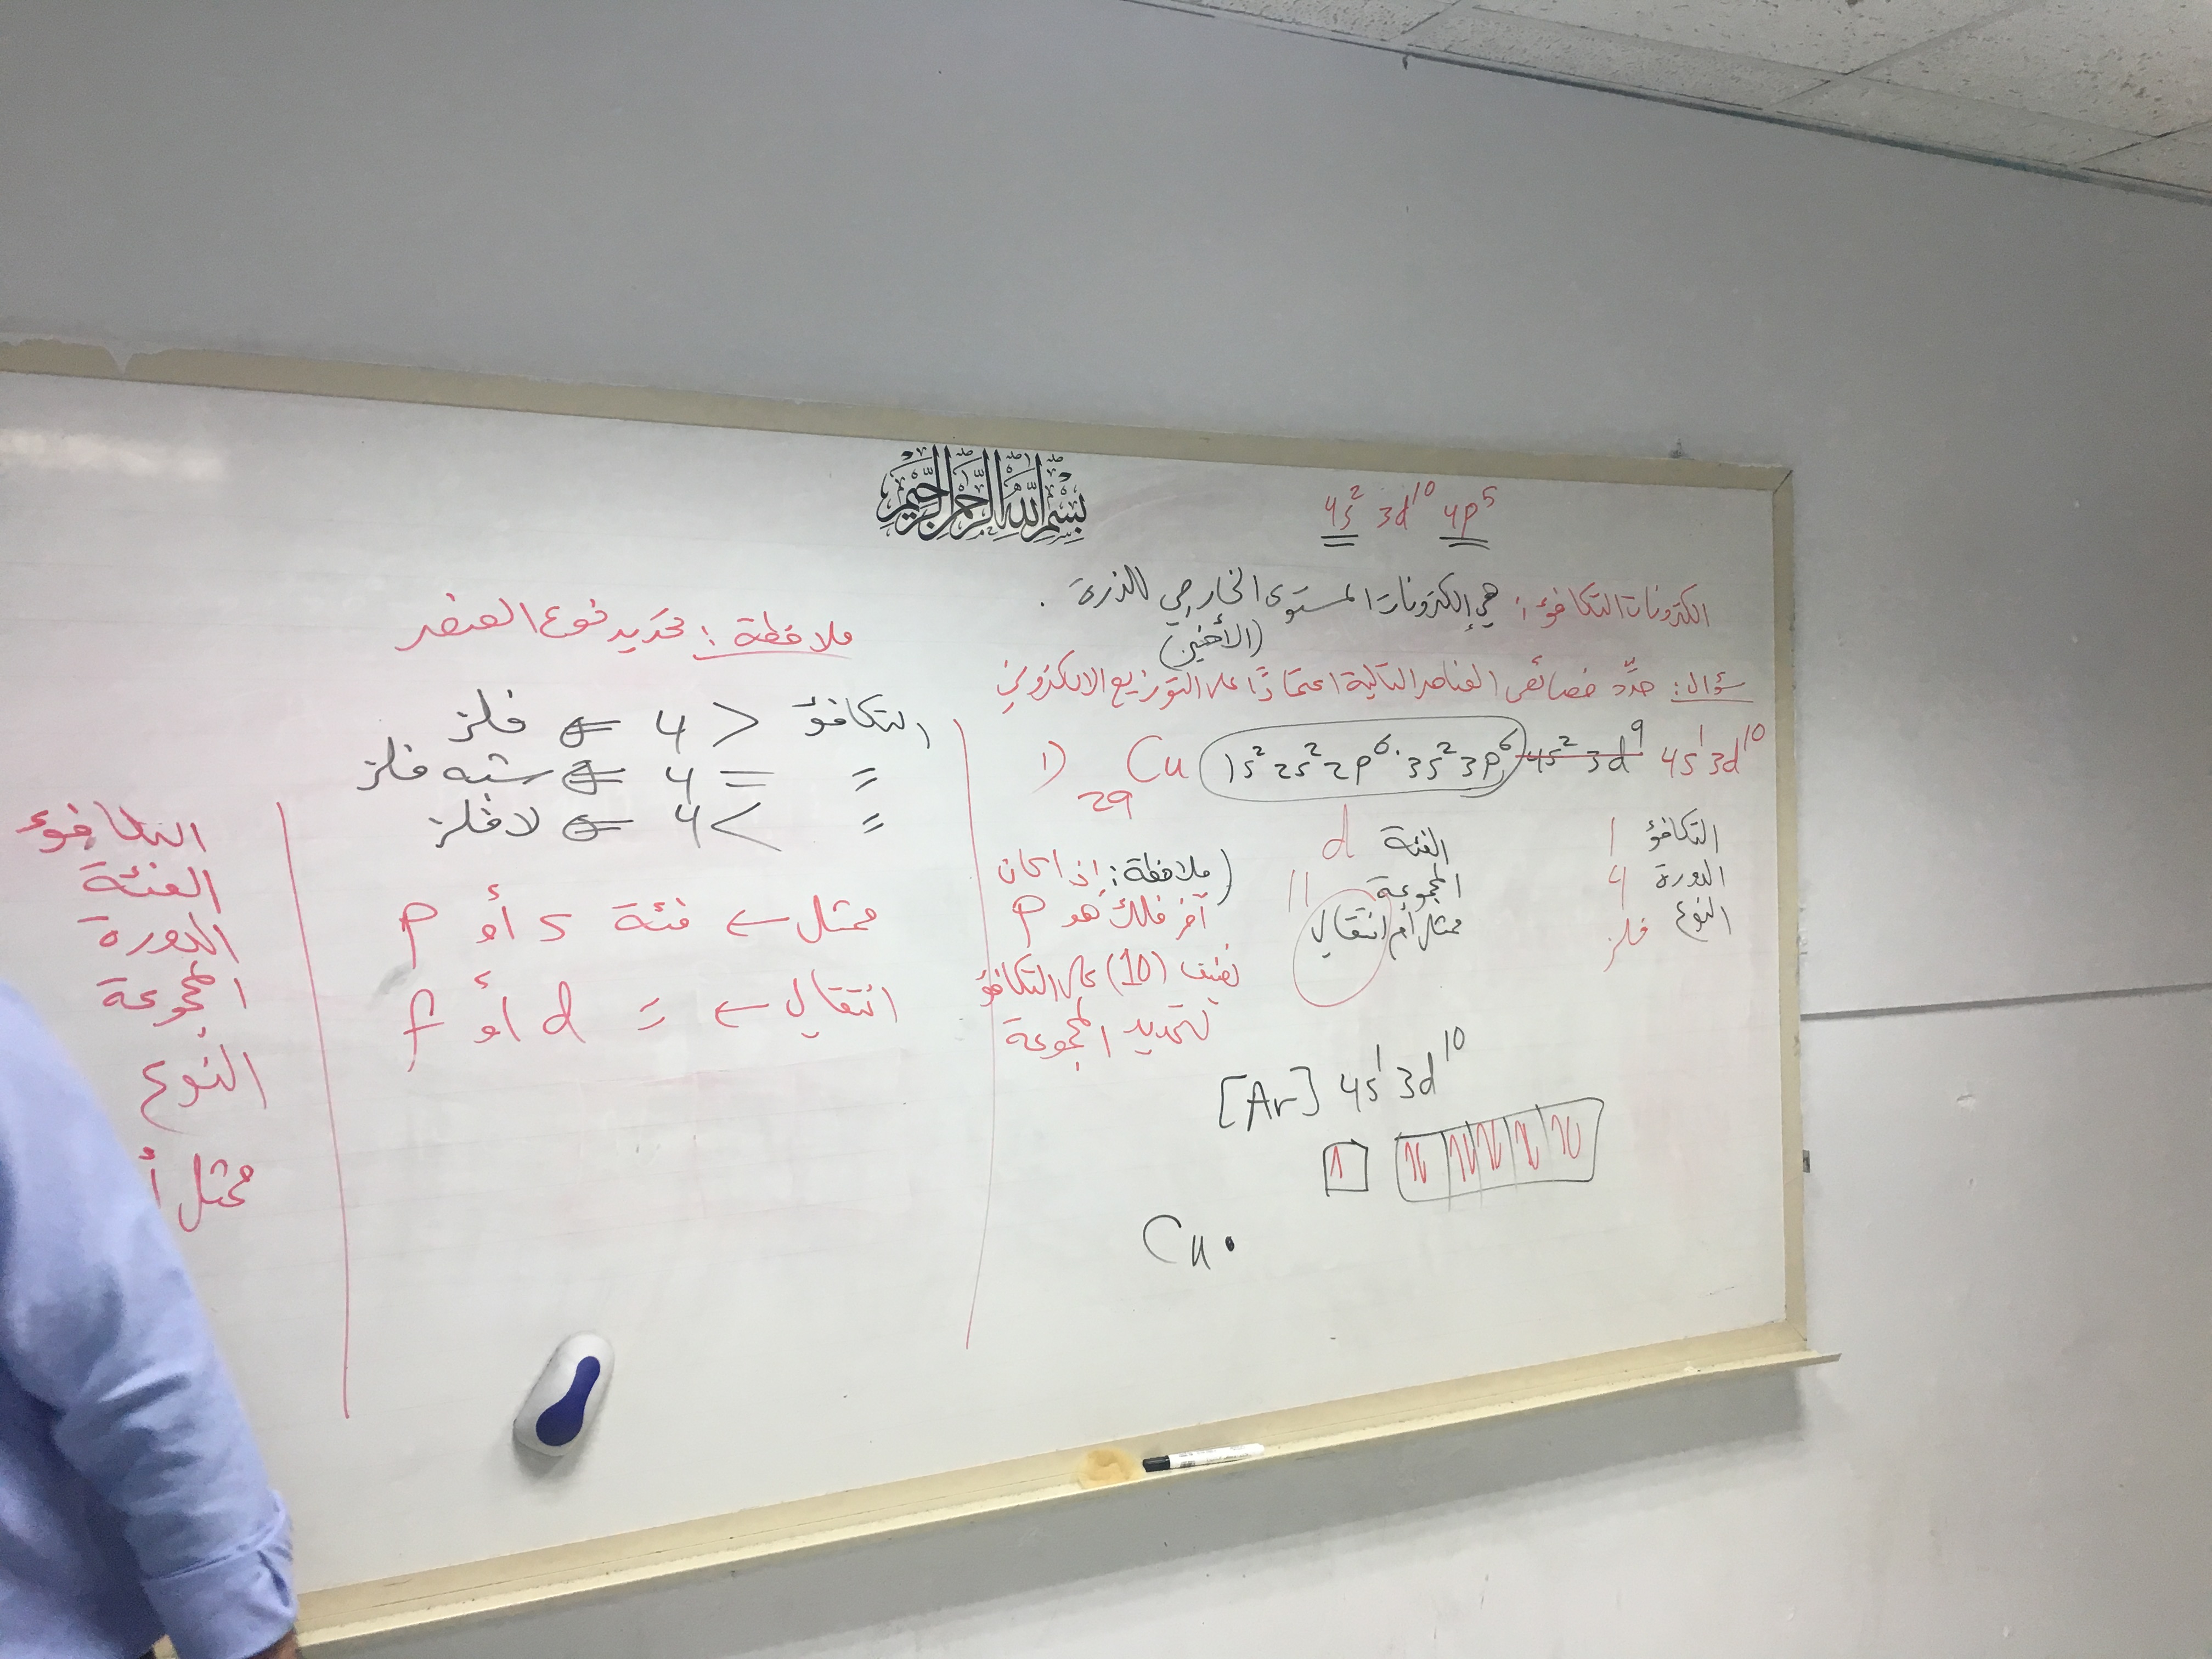 بسم الله الرحمن الرحيم
4s² 3d¹⁰ 4p⁵
الكترونات التكافؤ: هي إلكترونات المستوى الخارجي للذرة.
(الأخير)
سؤال: حدّد خصائص العناصر التالية اعتمادًا على التوزيع الالكتروني
1) ₂₉Cu 1s² 2s² 2p⁶ 3s² 3p⁶ 4s² 3d⁹ 4s¹ 3d¹⁰
التكافؤ 1
الدورة 4
النوع فلز
الفئة d
المجموعة 11
ممثل أم انتقالي
(ملاحظة: إذا كان
آخر فلك هو p
نضيف (10) على التكافؤ
لتحديد المجموعة
[Ar] 4s¹ 3d¹⁰
1 1l 1l 1l 1l 1l
Cu •
ملاحظة: تحديد نوع العنصر
التكافؤ < 4 ⇐ فلز
= = 4 ⇐ شبه فلز
= > 4 ⇐ لافلز
ممثل ← فئة s أو p
انتقالي ← = d أو f
التكافؤ
الفئة
الدورة
المجموعة
النوع
ممثل أ